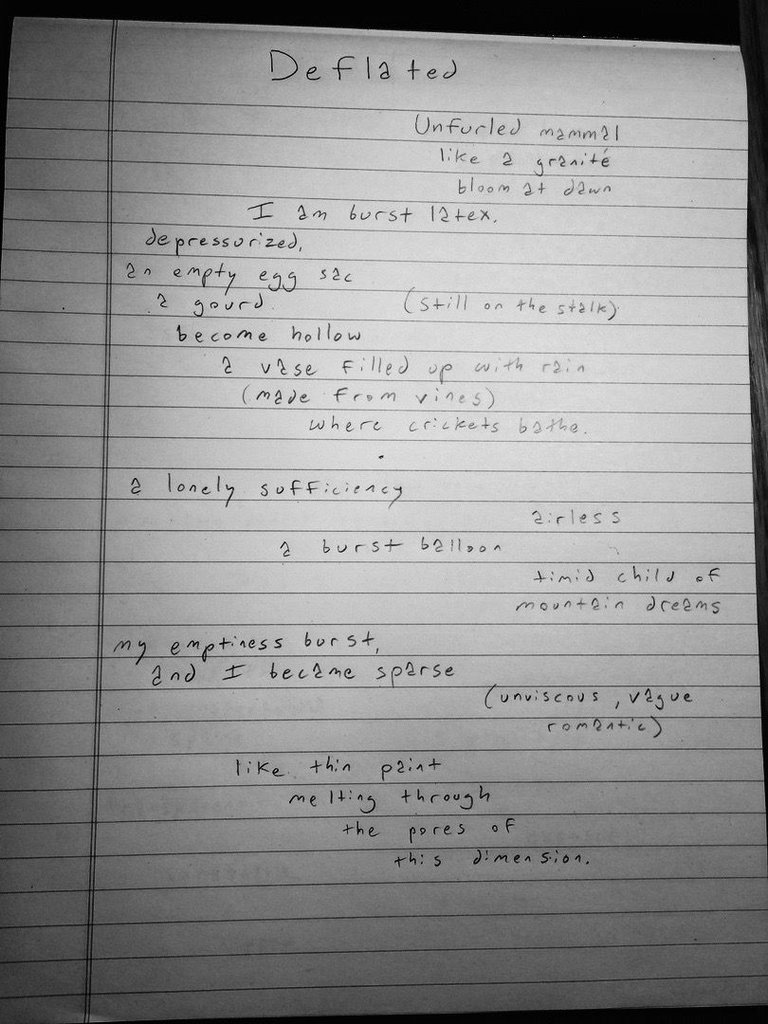 Deflated
Unfurled mammal
like a granité
bloom at dawn
I am burst latex.
depressurized,
an empty egg sac
a gourd (still on the stalk)
become hollow
a vase filled up with rain
(made from vines)
where crickets bathe.
.
a lonely sufficiency
airless
a burst balloon
timid child of
mountain dreams
my emptiness burst,
and I became sparse
(unviscous, vague
romantic)
like thin paint
melting through
the pores of
this dimension.